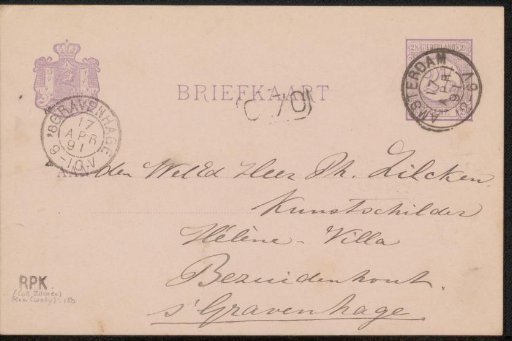 BRIEFKAART
AMSTERDAM
17
APR
91
'SGRAVENHAGE
17
APR
91
9-10.V
AAN den WelEd Heer Ph. Zilcken.
Kunstschilder
Hélène-Villa
Bezuidenhout.
s'Gravenhage.
RPK